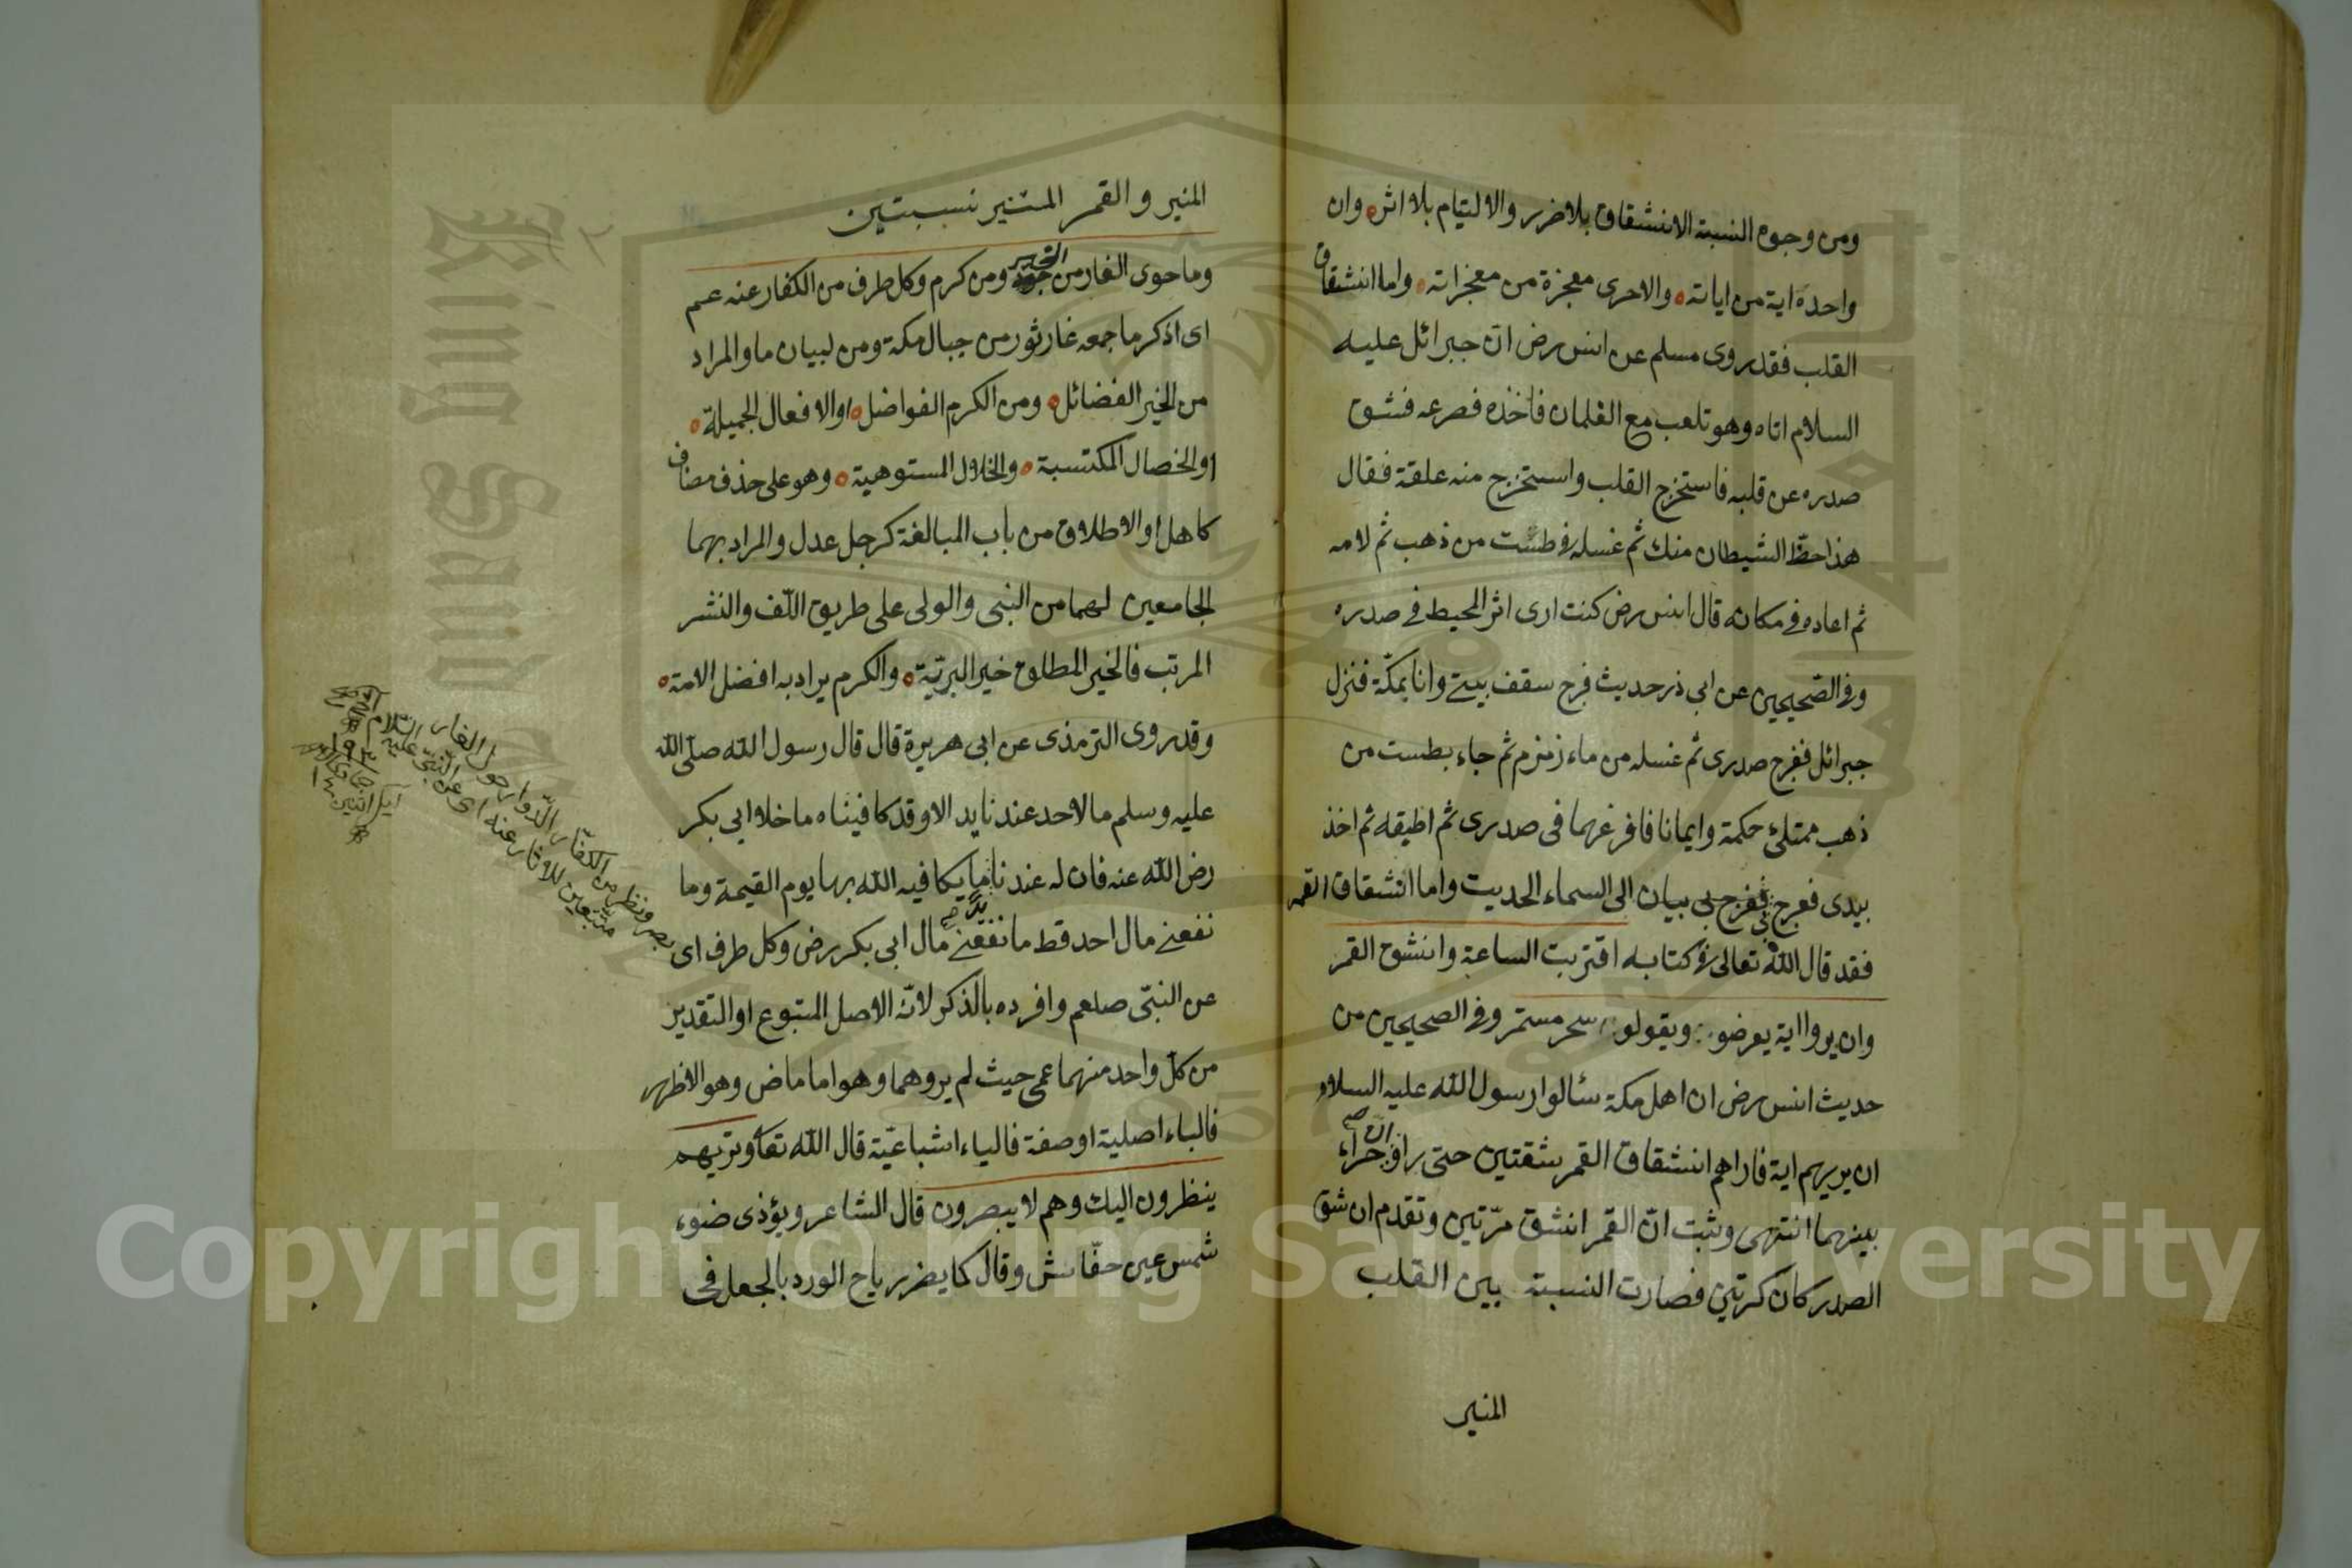 ومن وجوه النسبة الانشقاق بلا ضرر والالتيام بلا اثر وان
واحدة اية من اياته والاخرى معجزة من معجزاته واما انشقاق
القلب فقد روى مسلم عن انس رض ان جبرائل عليه
السلام اتاه وهو تلعب مع الغلمان فاخذه فصرعه فشق
صدره عن قلبه فاستخرج القلب واستخرج منه علقة فقال
هذا حظ الشيطان منك ثم غسله في طشت من ذهب ثم لامه
ثم اعاده في مكانه قال انس رض كنت ارى اثر المحيط في صدره
وفي الصّحيحين عن ابى ذر حديث فرج سقف بيتي وانا بمكّة فنزل
جبرائل ففرج صدرى ثم غسله من ماء زمزم ثم جاء بطست من
ذهب ممتلئ حكمة وايمانا فافرغهما فى صدرى ثم اطبقه ثم اخذ
بيدى فعرج بي الى السماء الحديث واما انشقاق القمر
فقد قال الله تعالى في كتابه اقتربت الساعة وانشق القمر
وان يروا اية يعرضوا ويقولوا سحر مستمر وفي الصحيحين من
حديث انس رض ان اهل مكة سئالوا رسول الله عليه السلام
ان يريهم اية فاراهم انشقاق القمر شقتين حتى راوا حراء
بينهما انتهى وثبت انّ القمر انشق مرّتين وتقدم ان شق
الصدر كان كرتين فصارت النسبة بين القلب
المنير
المنير والقمر المستنير نسبتين
وما حوى الغار من خير ومن كرم وكل طرف من الكفار عنه عم
اى اذكر ما جمعه غار ثور من جبال مكة ومن لبيان ما والمراد
من الخير الفضائل ومن الكرم الفواضل او الافعال الجميلة
او الخصال المكتسبة والخلال المستوهبة وهو على حذف مضاف
كاهل او الاطلاق من باب المبالغة كرجل عدل والمراد بهما
الجامعين لهما من النبى والولى على طريق اللّف والنشر
المرتب فالخير المطلوع خير البريّة والكرم يراد به افضل الامة
وقد روى الترمذى عن ابى هريرة قال قال رسول الله صلّى الله
عليه وسلم ما لاحد عندنا يد الا وقد كافيناه ما خلا ابى بكر
رض الله عنه فان له عندنا يد ما يكافيه الله بها يوم القيمة وما
نفعني مال احد قط ما نفعني مال ابى بكر رض وكل طرف اى
عن النبّى صلعم وافرده بالذكر لانّه الاصل المتبوع او التقدير
من كلّ واحد منهما عمى حيث لم يروهما وهو اما ماض وهو الاظهر
فالياء اصلية او صفة فالياء اشباعيّة قال الله تعا وتريهم
ينظرون اليك وهم لا يبصرون قال الشاعر ويؤذى ضوء
شمس عين خفّاش وقال كما يضر رياح الورد بالجعل فى
بصر ونظر من الكفّار الدّوار حول الغار
متتبعين للاثار عنه اى عن النّبىّ عليه السّلام